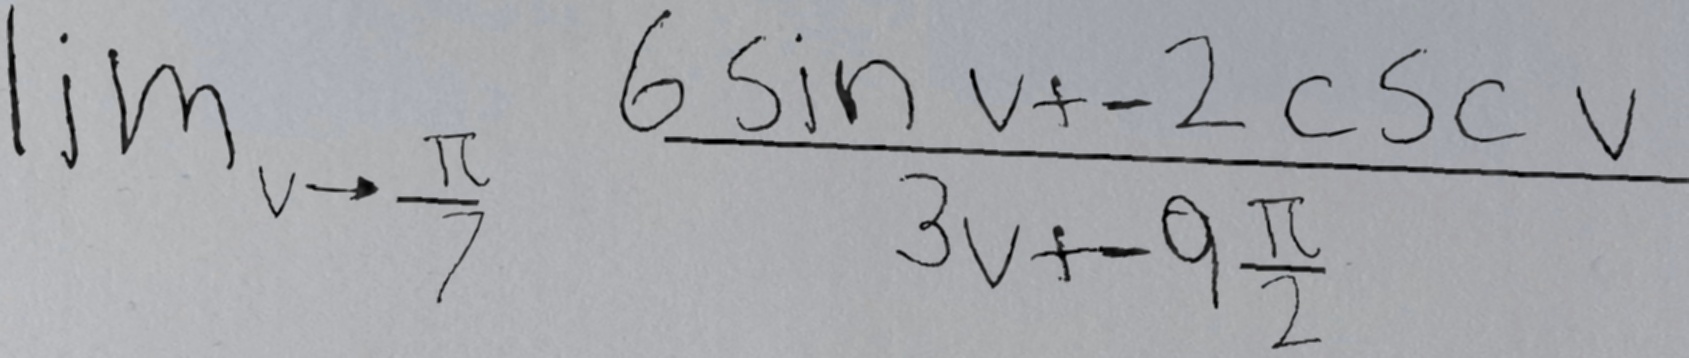 \lim_{v \to \frac{\pi}{7}} \frac{6 \sin v + -2 \csc v}{3v + -9 \frac{\pi}{2}}